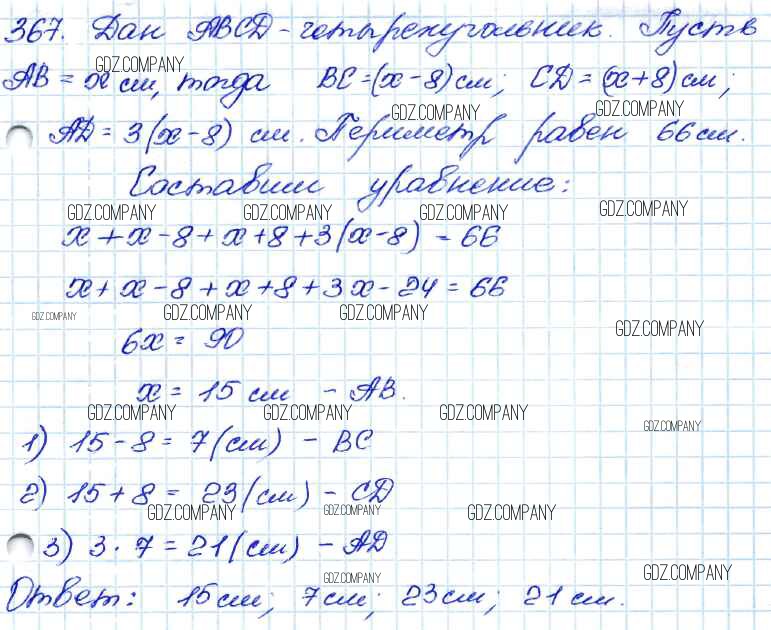 367. Дан ABCD - четырехугольник. Пусть
AB = x см, тогда BC = (x - 8) см; CD = (x + 8) см;
AD = 3(x - 8) см. Периметр равен 66 см.
Составим уравнение:
x + x - 8 + x + 8 + 3(x - 8) = 66
x + x - 8 + x + 8 + 3x - 24 = 66
6x = 90
x = 15 см - AB.
1) 15 - 8 = 7 (см) - BC
2) 15 + 8 = 23 (см) - CD
3) 3 · 7 = 21 (см) - AD
Ответ: 15 см; 7 см; 23 см; 21 см.
GDZ.COMPANY
GDZ.COMPANY GDZ.COMPANY
GDZ.COMPANY GDZ.COMPANY GDZ.COMPANY GDZ.COMPANY
GDZ.COMPANY GDZ.COMPANY GDZ.COMPANY GDZ.COMPANY
GDZ.COMPANY GDZ.COMPANY GDZ.COMPANY GDZ.COMPANY
GDZ.COMPANY GDZ.COMPANY GDZ.COMPANY
GDZ.COMPANY GDZ.COMPANY